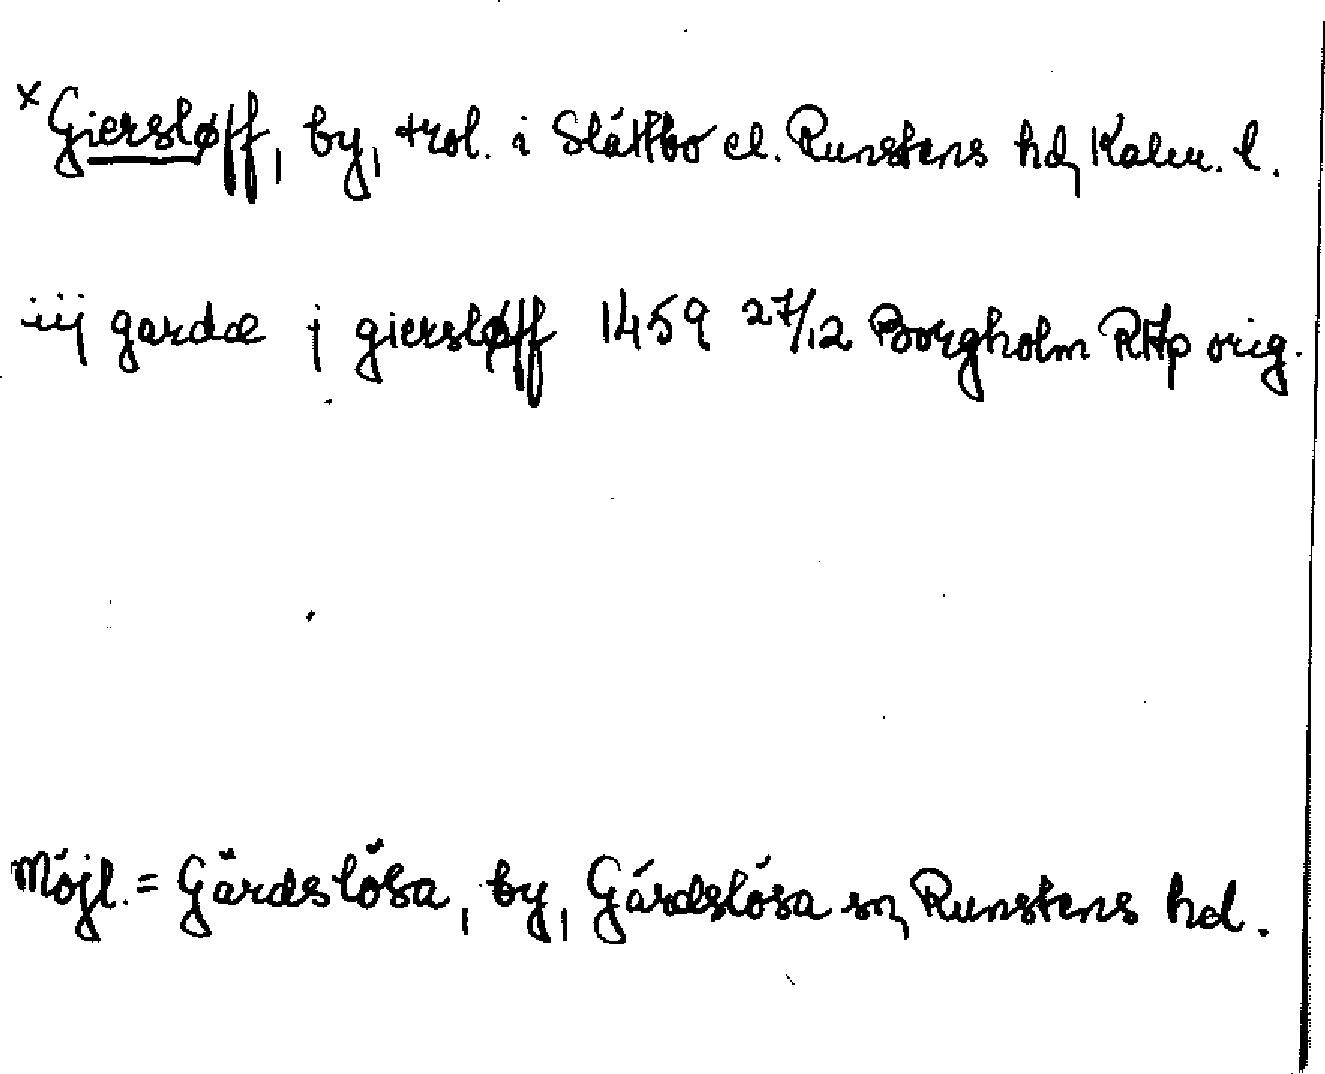 × Giersløff, by, trol. i Slättbo el. Runstens hd, Kalm. l.
iij gardæ j giersløff 1459 27/12 Borgholm RAp orig.
Möjl. = Gärdslösa, by, Gärdslösa sn, Runstens hd.